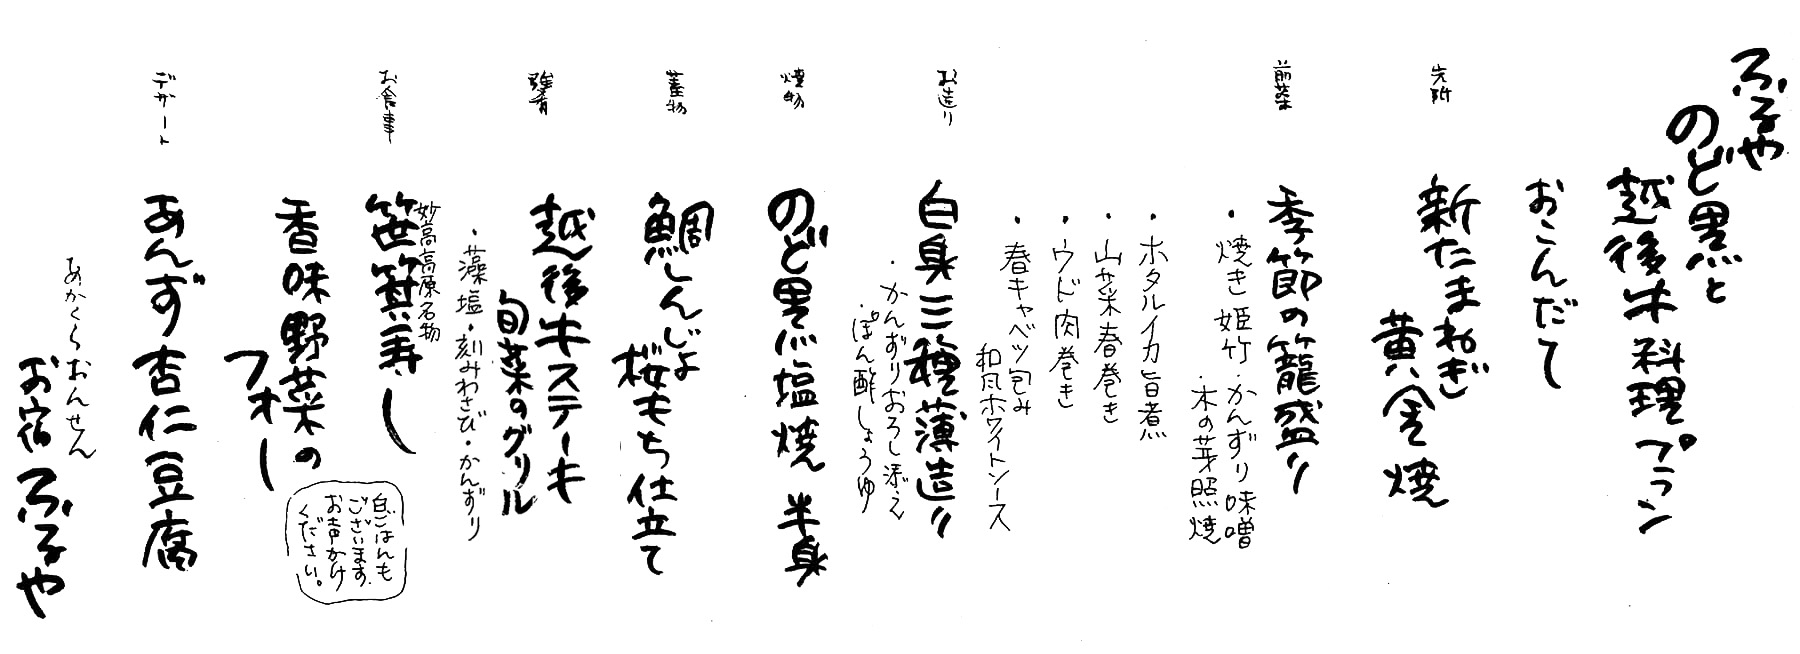 ふるや
のど黒と
越後牛料理プラン
おこんだて
先附
新たまねぎ
黄金焼
前菜
季節の籠盛り
・焼き姫竹・かんずり味噌
・木の芽照焼
・ホタルイカ旨煮
・山菜春巻き
・ウド肉巻き
・春キャベツ包み
和風ホワイトソース
お造り
白身三種薄造り
・かんずりおろし添え
・ぽん酢しょうゆ
焼物
のど黒塩焼 半身
蓋物
鯛しんじょ
桜もち仕立て
強肴
越後牛ステーキ
旬菜のグリル
・藻塩・刻みわさび・かんずり
お食事
妙高高原名物
笹箕寿し
香味野菜の
フォー
白ごはんも
ございます。
お声かけ
ください。
デザート
あんず杏仁豆腐
あかくらおんせん
お宿ふるや